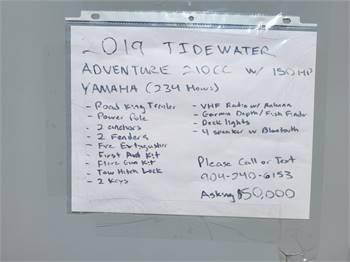 2019 TIDEWATER
ADVENTURE 210CC W/ 150HP
YAMAHA (234 Hours)
- Road King Trailer
- Power Pole
- 2 anchors
- 2 Fenders
- Fire Extinguisher
- First Aid Kit
- Flare Gun Kit
- Tow Hitch Lock
- 2 Keys
- VHF Radio w/ Antenna
- Garmin Depth/Fish Finder
- Deck lights
- 4 speaker w Bluetooth
Please Call or Text
904-240-6153
Asking $50,000